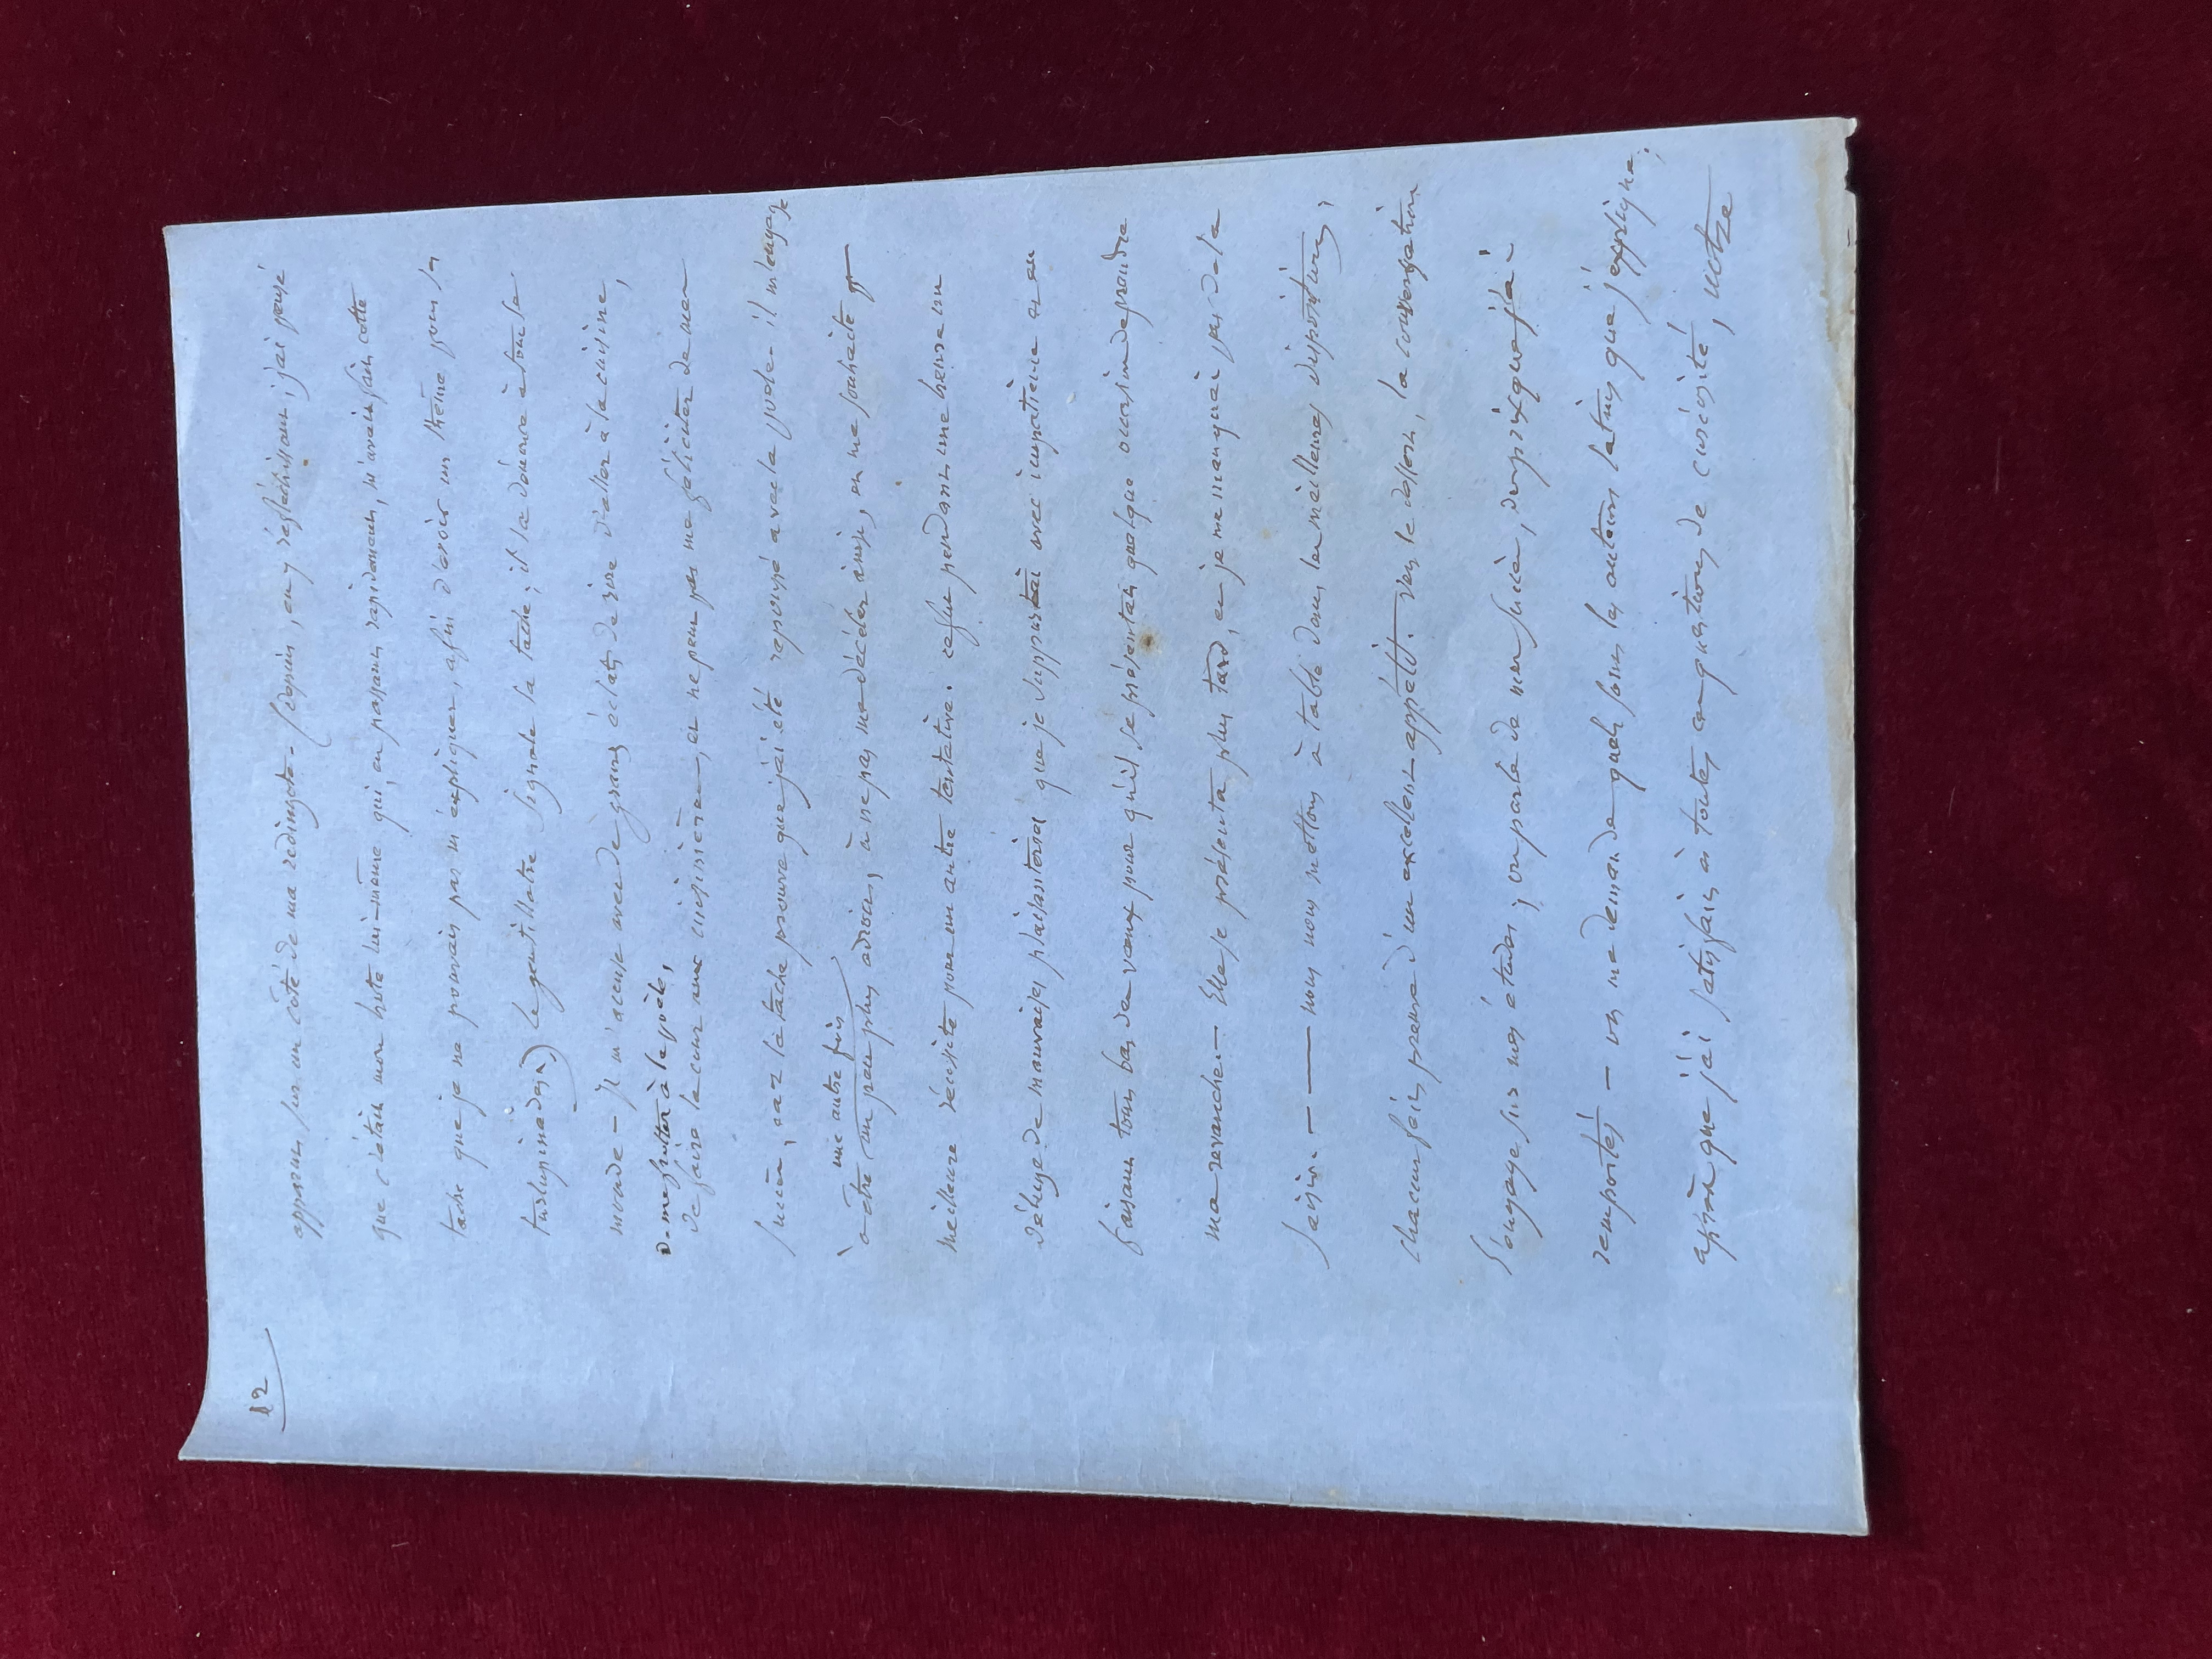 12
apparus sur un côté de ma redingote - (depuis, en y réfléchissant, j'ai pensé
que c'était mon hôte lui-même qui, en passant rapidement, m'avait fait cette
tache que je ne pouvais pas m'expliquer, afin d'avoir un thème pour sa
turlupinade.) le gentillatre signale la tache; il la dénonce à tout le
monde - on m'accuse avec de grands éclats de rire d'aller à la cuisine,
de me frotter à la poële,
de faire la cour aux cuisinières, on ne peut pas me féliciter de mon
succès, car la tache prouve que j'ai été repoussé avec la poële. il m'engage
une autre fois
à être un peu plus adroit, à ne pas me décéler ainsi, on me souhaite
meilleure réussite pour une autre tentative. ce fut pendant une heure un
déluge de mauvaises plaisanteries que je supportai avec impatience et en
faisant tout bas des vœux pour qu'il se présentât quelque occasion de prendre
ma revanche - Elle se présenta plus tard, et je ne manquai pas de la
saisir. - — nous nous mettons à table dans les meilleures dispositions;
chacun fait preuve d'un excellent appétit. vers le dessert, la conversation
s'engage sur mes études; on parle de mes succès, des prix que j'ai
remportés - on me demande quels sont les auteurs latins que j'explique;
après que j'ai satisfait à toutes ces questions de curiosité, notre